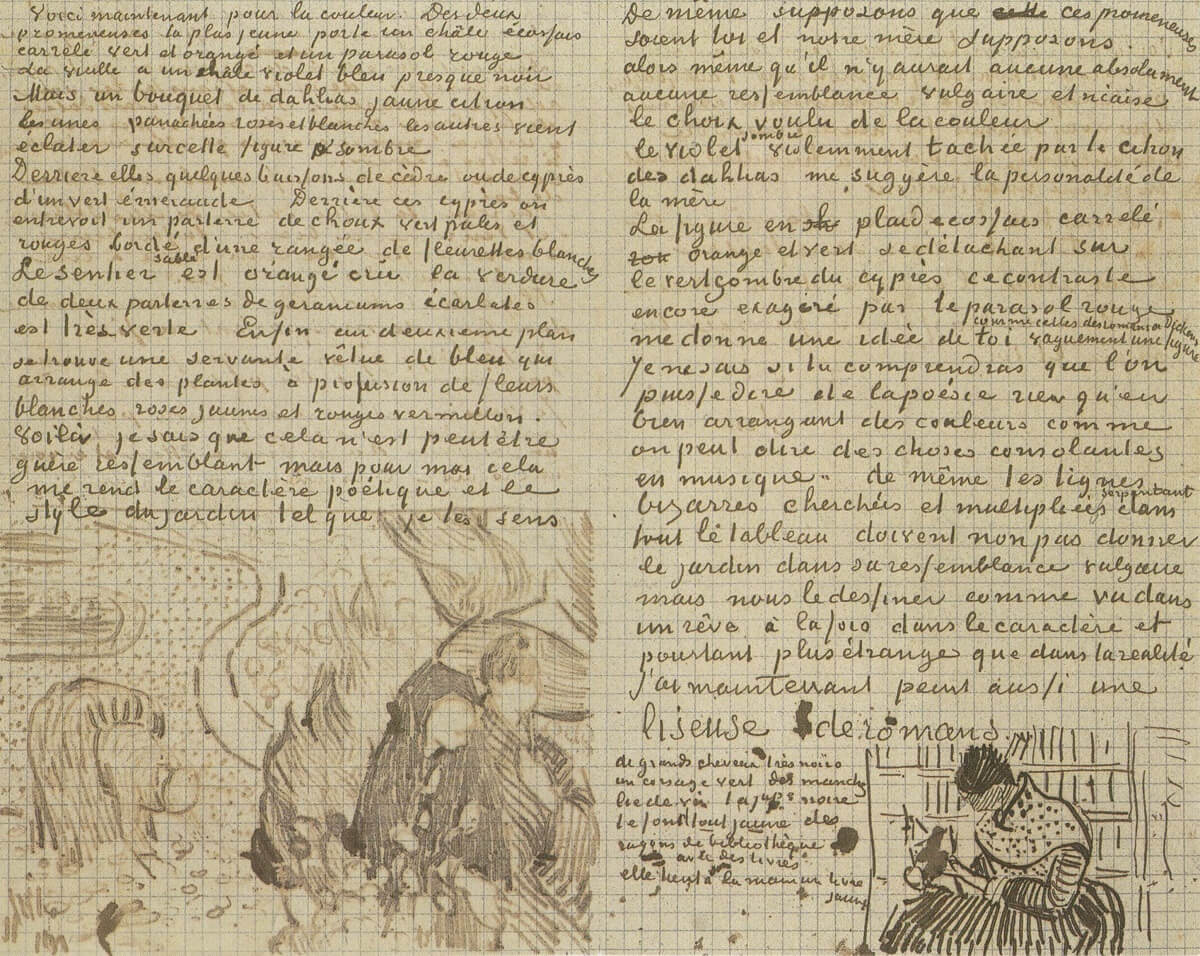 Voici maintenant pour la couleur. Des deux
promeneuses la plus jeune porte un châle écossais
carrélé vert et orangé et un parasol rouge
La vieille a un châle violet bleu presque noir
Mais un bouquet de dahlias jaune citron
les unes panachées roses et blanches les autres vient
éclater sur cette figure sombre
Derrière elles quelques buissons de cèdre ou de cyprès
d'un vert émeraude Derrière ces cyprès on
entrevoit un parterre de choux verts pâles et
rouges bordé d'une rangée de fleurettes blanches
Le sentier sablé est orangé cru la verdure
de deux parterres de géraniums écarlates
est très verte Enfin au deuxième plan
se trouve une servante vêtue de bleu qui
arrange des plantes à profusion de fleurs
blanches roses jaunes et rouges vermillon.
Voilà je sais que cela n'est peut être
guère ressemblant mais pour moi cela
me rend le caractère poétique et le
style du jardin tel que je les sens
De même supposons que ces promeneuses
soient toi et notre mère supposons.
alors même qu'il n'y aurait aucune absolument
aucune ressemblance vulgaire et niaise
le choix voulu de la couleur
le violet sombre violemment tachée par le citron
des dahlias me suggère la personalité de
la mère
La figure en plaid ecossais carrelé
orange et vert se détachant sur
le vert sombre du cyprès ce contraste
encore exagéré par le parasol rouge
me donne une idée de toi vaguement une figure
comme celles des romans de Dickens
Je ne sais si tu comprendras que l'on
puisse dire de la poésie rien qu'en
bien arrangant des couleurs comme
on peut dire des choses consolantes
en musique. de même les lignes
bizarres cherchées et multipliées serpentant dans
tout le tableau doivent non pas donner
le jardin dans sa ressemblance vulgaire
mais nous le dessiner comme vu dans
un rêve à la fois dans le caractère et
pourtant plus étrange que dans la réalité
J'ai maintenant peint aussi une
liseuse de romans.
de grands cheveux très noirs
un corsage vert des manches
lie de vin la jupe noire
le fond tout jaune des
rayons de bibliothèque
avec des livres
elle tient à la main un livre
jaune